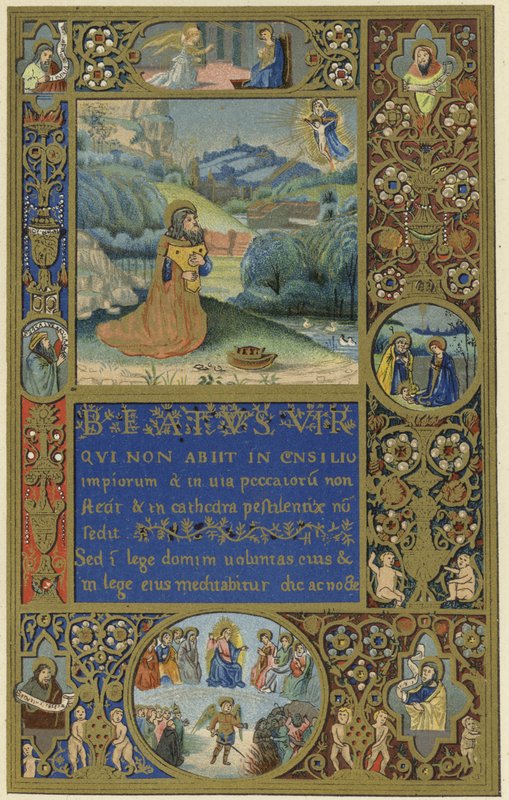 BEATVS VIR
QVI NON ABIIT IN CNSILIO
impiorum & in uia peccatorū non
stetit & in cathedra pestilentiæ nō
sedit
Sed ī lege domini uoluntas eius &
in lege eius meditabitur die ac nocte